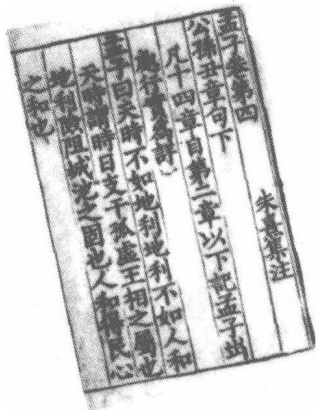 孟子卷第四
朱熹集注
公孫丑章句下
凡十四章自第二章以下記孟子出
處行實為詳
孟子曰天時不如地利地利不如人和
天時謂時日支干孤虛王相之屬也
地利險阻城池之固也人和得民心
之和也